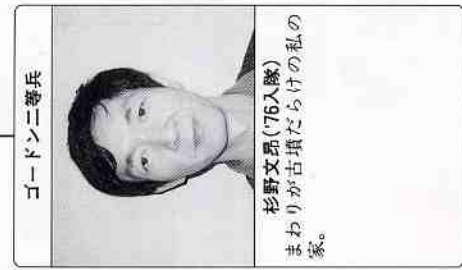 ゴードン二等兵
杉野文昂('76入隊)
まわりが古墳だらけの私の
家。